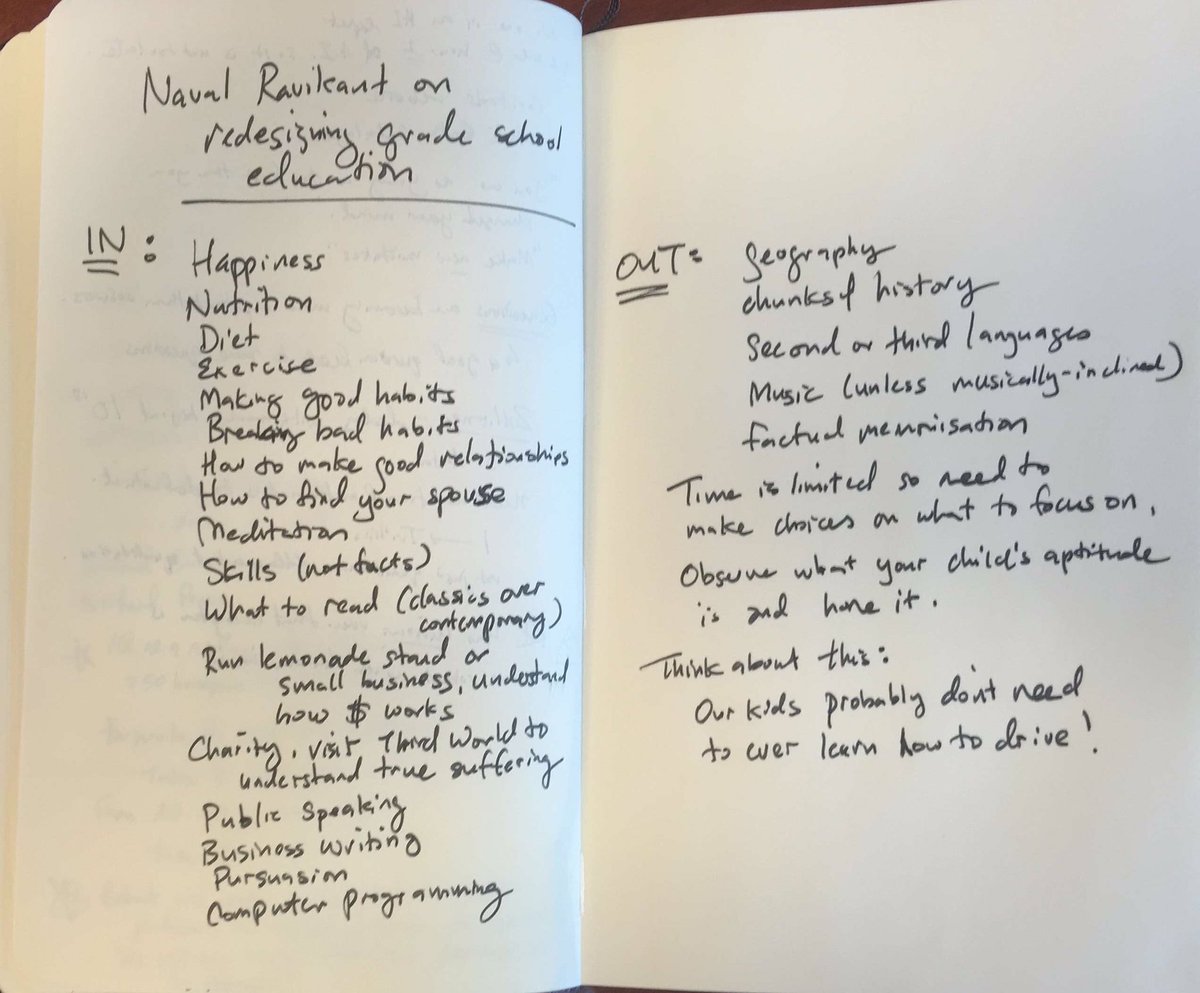 Naval Ravikant on
redesigning grade school
education
IN:
Happiness
Nutrition
Diet
Exercise
Making good habits
Breaking bad habits
How to make good relationships
How to find your spouse
Meditation
Skills (not facts)
What to read (classics over
contemporary)
Run lemonade stand or
small business, understand
how $ works
Charity, visit Third World to
understand true suffering
Public Speaking
Business writing
Pursuasion
Computer programming
OUT: Geography
chunks of history
Second or third languages
Music (unless musically-inclined)
factual memorisation
Time is limited so need to
make choices on what to focus on.
Observe what your child's aptitude
is and hone it.
Think about this:
Our kids probably don't need
to ever learn how to drive!